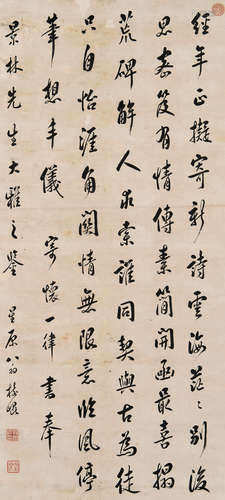 經年正擬寄新詩雲海茫茫別後
思喜芨有情傳素簡開函最喜搨
荒碑解人求索誰同契與古為徒
只自怡涯角關情無限意臨風停
筆想丰儀 寄懷一律書奉
景林先生大雅之鑒 星原